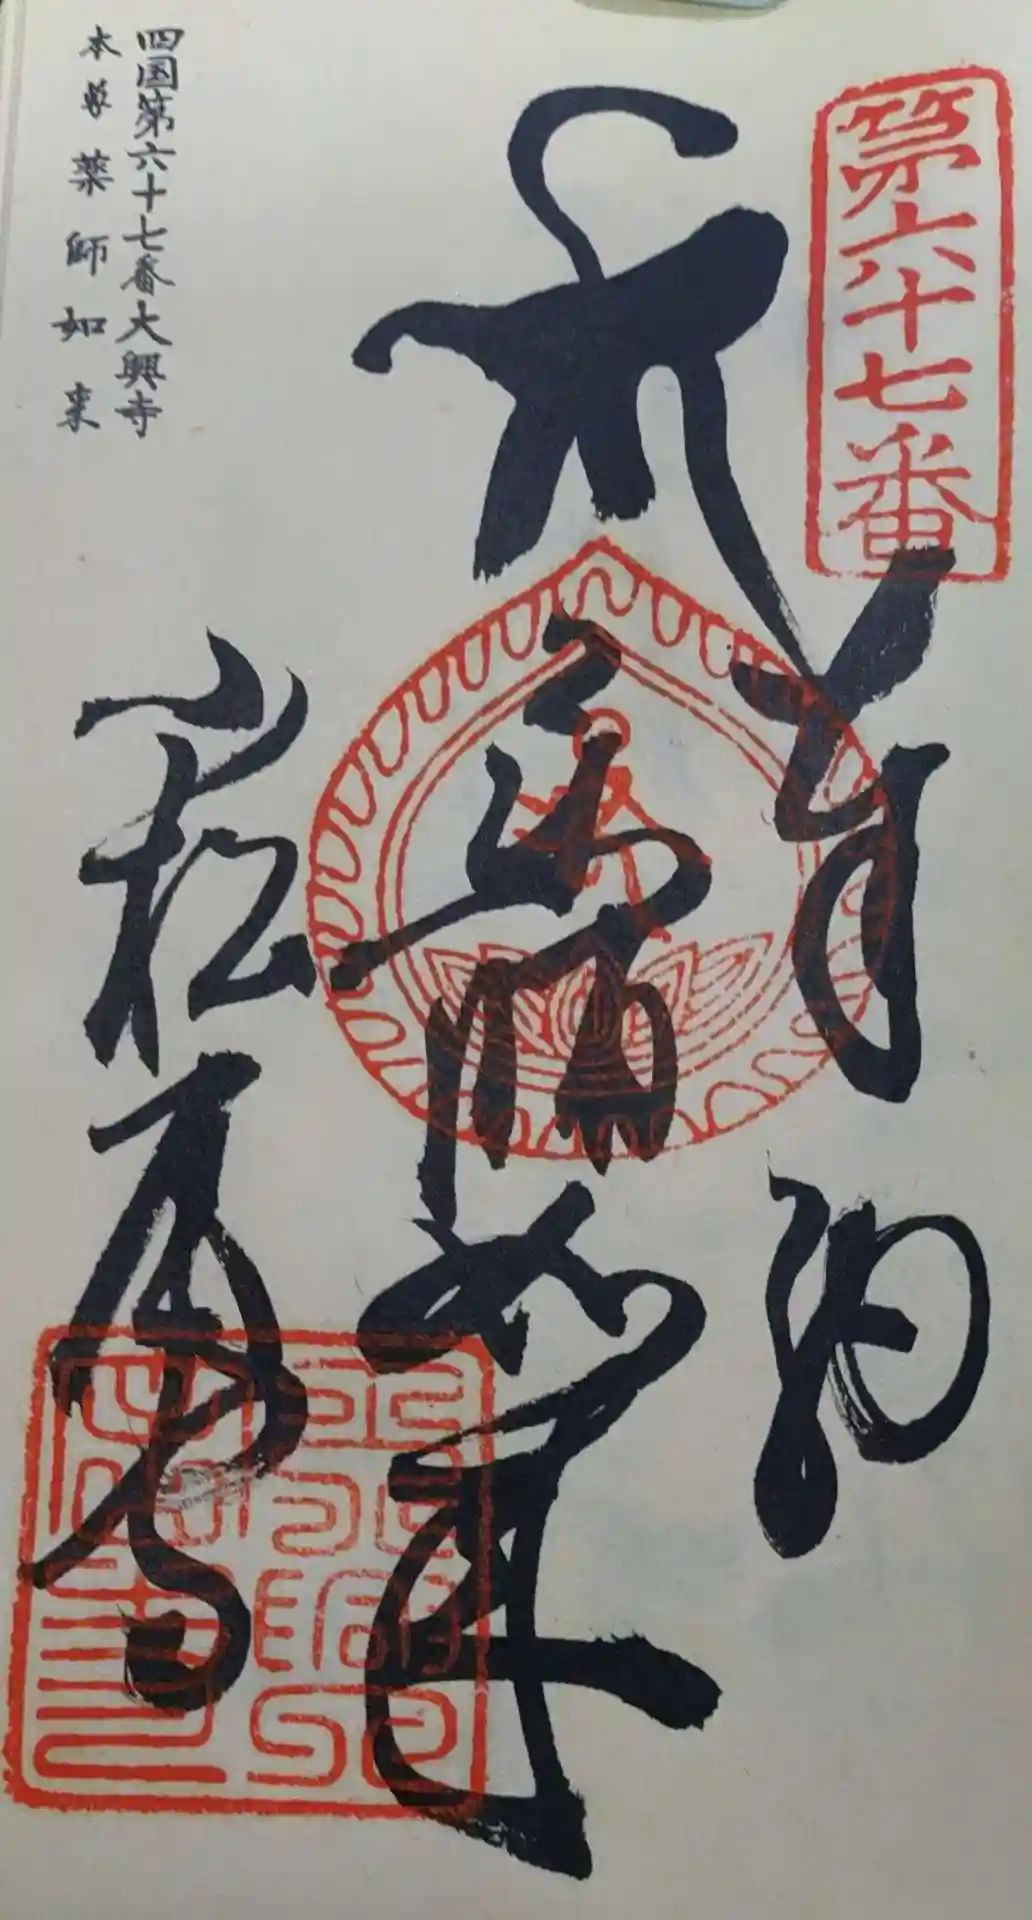 第六十七番
奉納
薬師如来
小松尾寺
四国第六十七番大興寺
本尊薬師如来